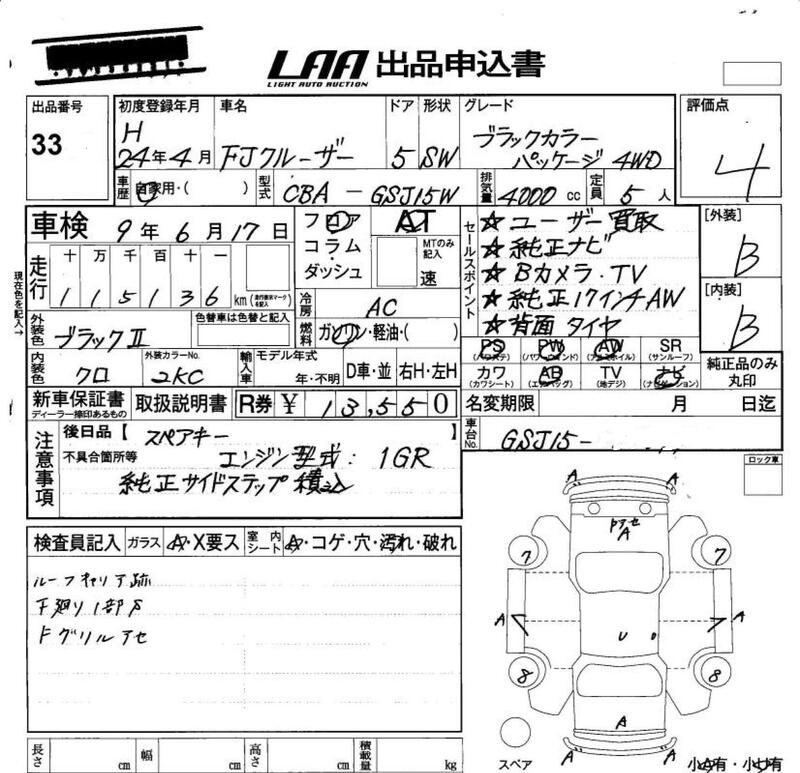 LAA 出品申込書
LIGHT AUTO AUCTION
出品番号 33
初度登録年月 H 24年4月
車名 FJクルーザー
ドア 5
形状 SW
グレード ブラックカラーパッケージ 4WD
評価点 4
車歴 自家用・( )
型式 CBA-GSJ15W
排気量 4000 cc
定員 5人
車検 9年6月17日
フロア
コラム・
ダッシュ
AT
MTのみ記入
速
セールスポイント
☆ユーザー買取
☆純正ナビ
☆Bカメラ・TV
☆純正17インチAW
☆背面タイヤ
[外装] B
[内装] B
現在色を記入→
走行 十 万 千 百 十 一
1 1 5 1 3 6 km (走行換算マークを記入)
冷房 AC
燃料 ガソリン・軽油・( )
外装色 ブラックⅡ
色替車は色替と記入
内装色 クロ
外装カラーNo. 2KC
輸入車 モデル年式 年・不明
D車・並
右H・左H
PS (パワステ) PW (パワーウインド) AW (アルミホイル) SR (サンルーフ)
カワ (カワシート) AB (エアバッグ) TV (地デジ) ナビ (ナビゲーション)
純正品のみ丸印
新車保証書
ディーラー捺印あるもの
取扱説明書
R券 ¥ 13,550
名変期限 月 日迄
注意事項
後日品【 スペアキー 】
不具合箇所等 エンジン型式:1GR
純正サイドステップ積込
車台No. GSJ15-
ロック車
検査員記入
ガラス A・X要ス
室内シート A・コゲ・穴・汚れ・破れ
ルーフキャリア跡
下廻り1部S
Fグリルアセ
A A
Fアセ
A
7 7
A A
U
8 8
A
A A
スペア
小A有・小U有
長さ cm
幅 cm
高さ cm
積載量 kg